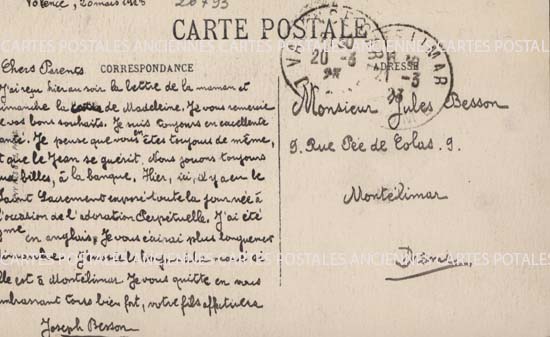 Valence, 20 mars 1923
20793
CARTE POSTALE
CORRESPONDANCE
ADRESSE
Chers Parents
J'ai reçu hier au soir la lettre de la maman et
dimanche la de Madeleine. Je vous remercie
de vos bons souhaits. Je suis toujours en excellente
santé. Je pense que vous en êtes toujours de même,
et que le Jean se guérit. Nous jouons toujours
aux billes, à la banque. Hier, ici, il y a eu le
Saint Sacrement exposé toute la journée à
l'occasion de l'adoration Perpétuelle. J'ai été
9me en anglais. Je vous écrirai plus longuement
elle est à Montélimar Je vous quitte en vous
embrassant tous bien fort, votre fils affectueux
Joseph Besson
Monsieur Jules Besson
9. Rue Pée de Colas. 9.
Montélimar
Drôme
20 -3
23
CARTES POSTALES ANCIENNES